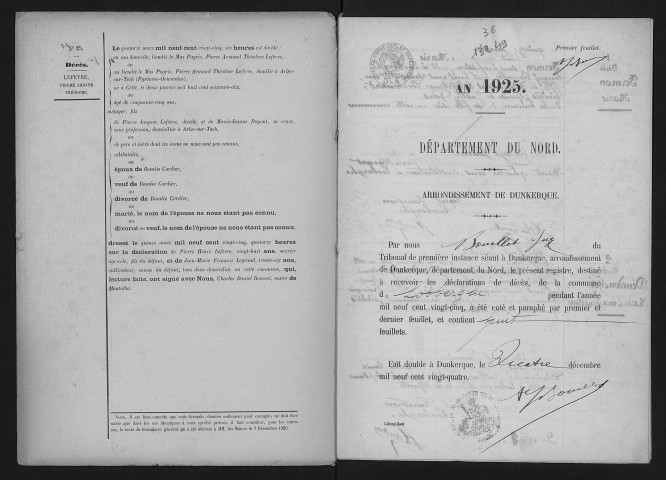 Décès.
LEFEVRE,
PIERRE ARMAND
THÉODORE.
Le quatorze mars mil neuf cent vingt-cinq, six heures est décédé
en son domicile, lieudit le Mas Pagris, Pierre Armand Théodore Lefevre,
ou
au lieudit le Mas Pagris, Pierre Armand Théodore Lefevre, domicilié à Arles-
sur-Tech (Pyrénées-Orientales),
né à Cette, le deux janvier mil huit cent soixante-dix,
ou
âgé de cinquante-cinq ans,
ménager, fils
de Pierre Jacques Lefevre, décédé, et de Marie-Jeanne Dupont, sa veuve,
sans profession, domiciliée à Arles-sur-Tech,
ou
de père et mère dont les noms ne nous sont pas connus,
célibataire,
ou
époux de Rosalie Cordier,
ou
veuf de Rosalie Cordier,
ou
divorcé de Rosalie Cordier,
ou
marié, le nom de l'épouse ne nous étant pas connu,
ou
divorcé ou veuf, le nom de l'épouse ne nous étant pas connu,
dressé le quinze mars mil neuf cent vingt-cinq, quatorze heures
sur la déclaration de Pierre Henri Lefevre, vingt-huit ans, ouvrier
agricole, fils du défunt, et de Jean-Marie François Legrand, trente-six ans,
cultivateur, voisin du défunt, tous deux domiciliés en cette commune, qui,
lecture faite, ont signé avec Nous, Charles Daniel Roussel, maire de
Montalba.
NOTA. Il est bien entendu que cette formule, donnée seulement pour exemple, ne doit être
suivie que dans les cas identiques à ceux qu'elle prévoit. Il faut consulter, pour les autres
cas, le texte du formulaire général qui a été adressé à MM. les Maires le 7 Décembre 1920.
38
Premier feuillet.
AN 1925.
DÉPARTEMENT DU NORD.
ARRONDISSEMENT DE DUNKERQUE.
Par nous Bouillet Juge du
Tribunal de première instance séant à Dunkerque, arrondissement
de Dunkerque, département du Nord, le présent registre, destiné
à recevoir les déclarations de décès, de la commune
d Looberghe pendant l'année
mil neuf cent vingt-cinq, a été coté et paraphé par premier et
dernier feuillet, et contient huit
feuillets.
Fait double à Dunkerque, le quatre décembre
mil neuf cent vingt-quatre.